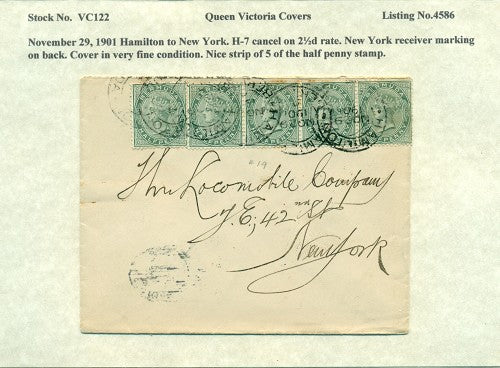 Stock No. VC122 Queen Victoria Covers Listing No.4586
November 29, 1901 Hamilton to New York. H-7 cancel on 2½d rate. New York receiver marking
on back. Cover in very fine condition. Nice strip of 5 of the half penny stamp.
#19
The Locomobile Company
7. E, 42nd St
New York